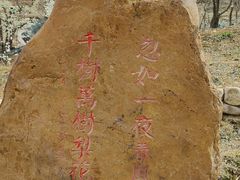 忽如一夜春
千樹萬樹梨花